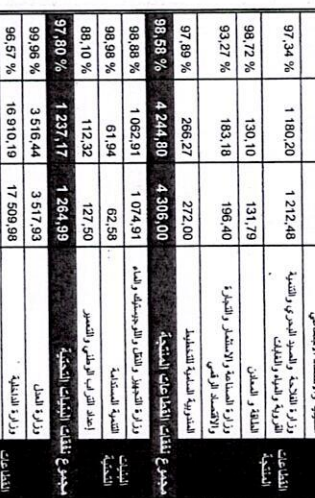 القطاعات المنتجة
وزارة الفلاحة والصيد البحري والتنمية القروية والمياه والغابات 1 212,48 1 180,20 97,34 %
الطاقة و المعادن 131,79 130,10 98,72 %
وزارة الصناعة والاستثمار والتجارة والاقتصاد الرقمي 196,40 183,18 93,27 %
المندوبية السامية للتخطيط 272,00 266,27 97,89 %
مجموع نفقات القطاعات المنتجة 4 306,00 4 244,80 98,58 %
البنيات التحتية
وزارة التجهيز والنقل واللوجيستيك والماء 1 074,91 1 062,91 98,88 %
التنمية المستدامة 62,58 61,94 98,98 %
إعداد التراب الوطني والتعمير 127,50 112,32 88,10 %
مجموع نفقات البنيات التحتية 1 264,99 1 237,17 97,80 %
القطاعات
وزارة العدل 3 517,93 3 516,44 99,96 %
وزارة الداخلية 17 509,98 16 910,19 96,57 %